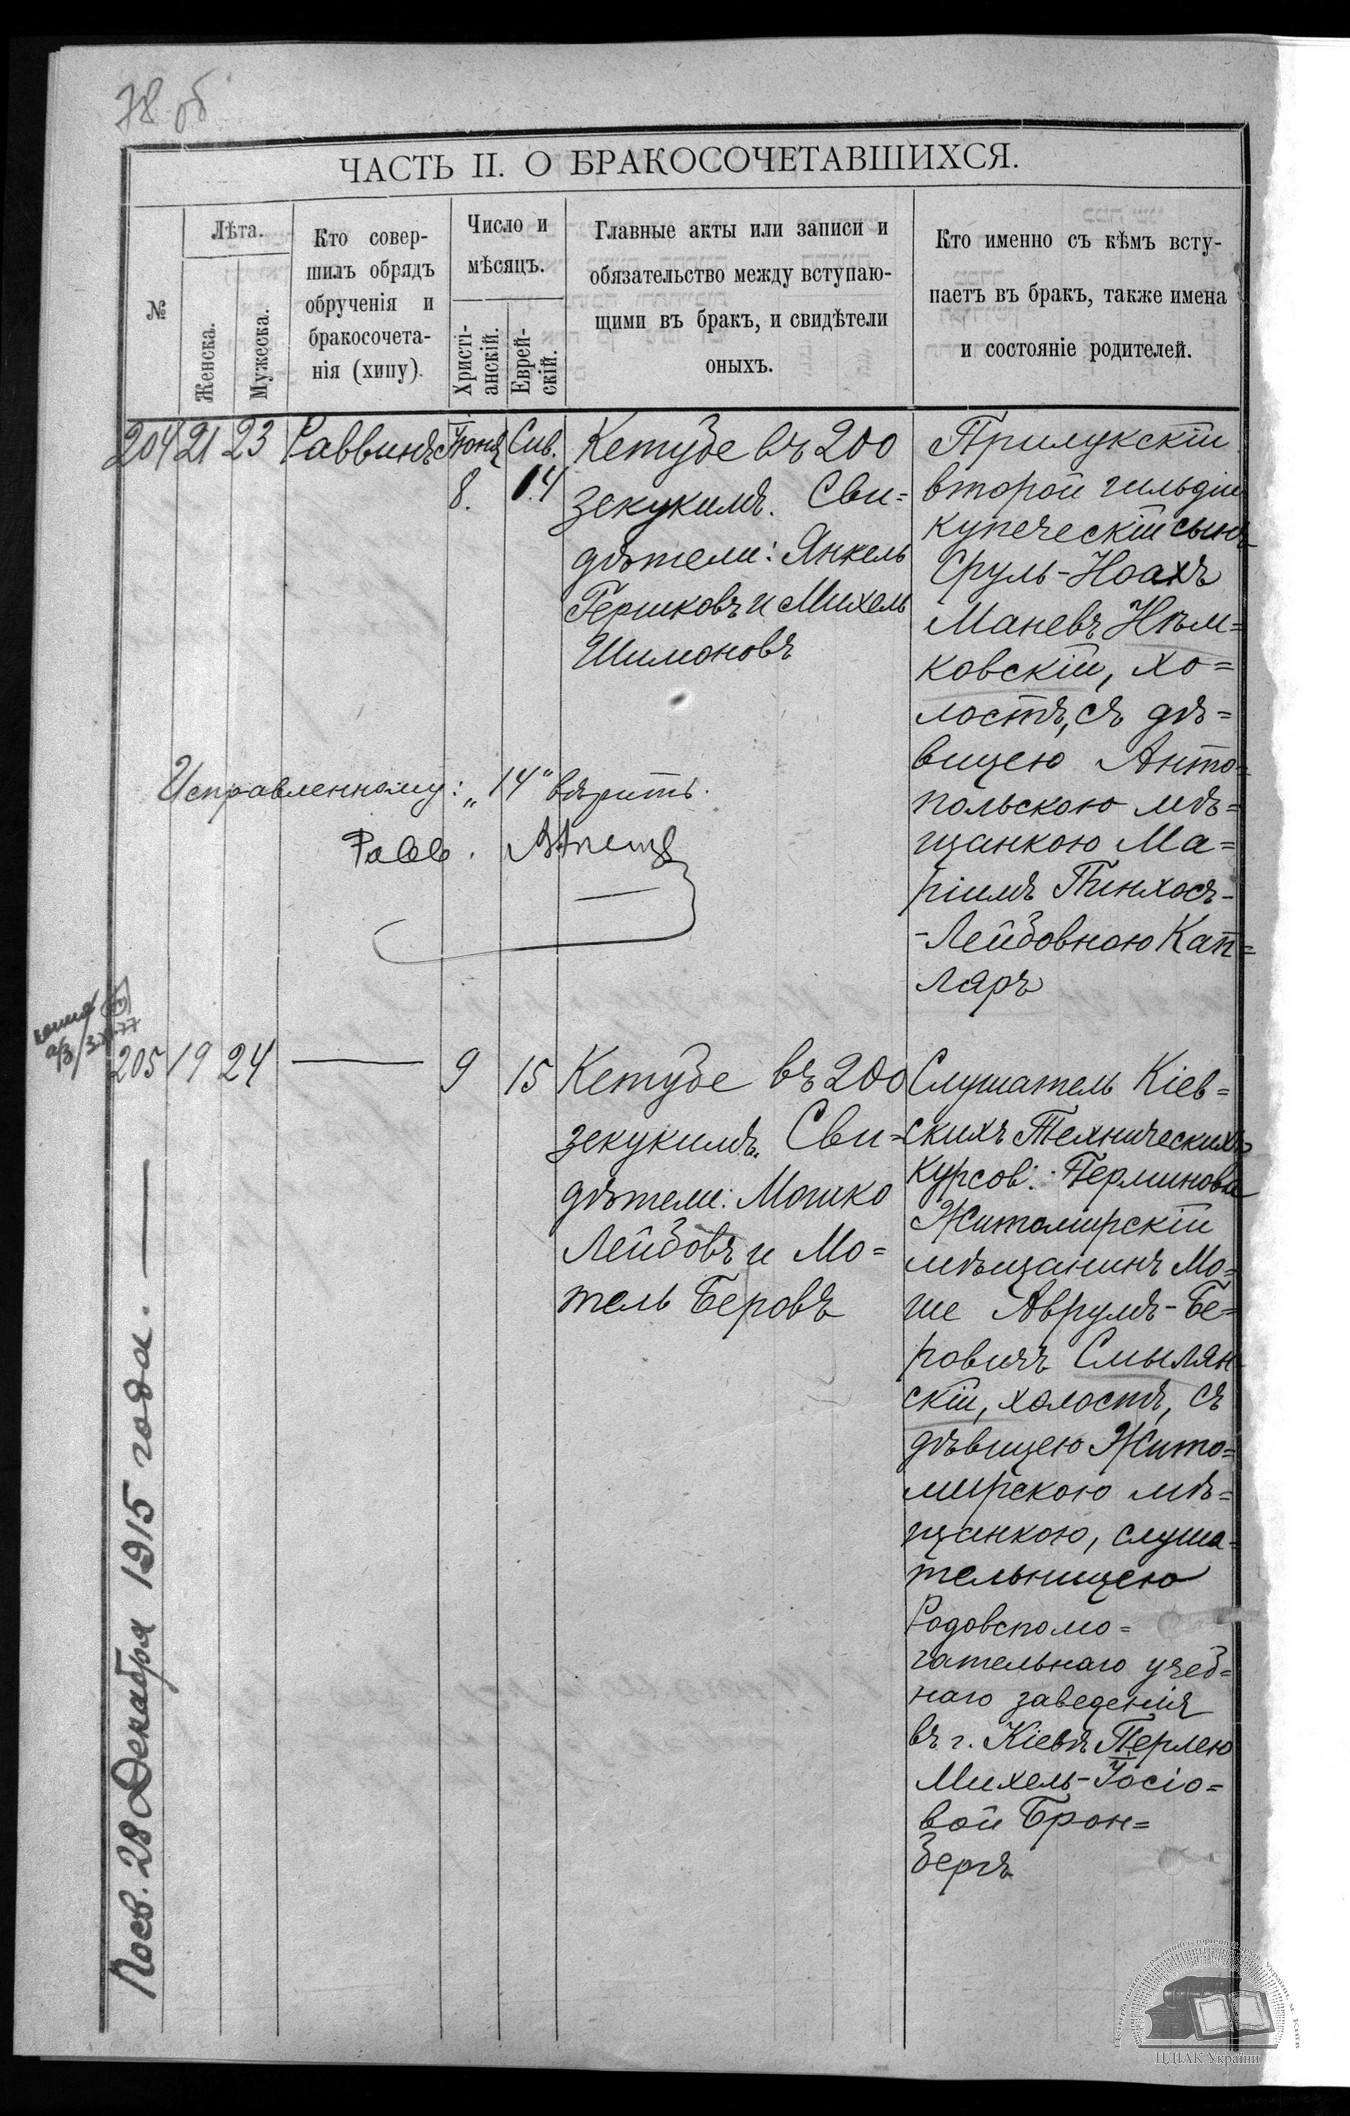 78 об
ЧАСТЬ II. О БРАКОСОЧЕТАВШИХСЯ.
№
Лѣта.
Женска.
Мужеска.
Кто совер-
шилъ обрядъ
обрученія и
бракосочета-
нія (хипу).
Число и
мѣсяцъ.
Христі-
анскій.
Еврей-
скій.
Главные акты или записи и
обязательство между вступаю-
щими въ бракъ, и свидѣтели
оныхъ.
Кто именно съ кѣмъ всту-
паетъ въ бракъ, также имена
и состояніе родителей.
204 21 23 Раввинъ Іюня 8. Сив. 14
Кетубе въ 200
зекукимъ. Сви=
дѣтели: Янкель
Гершковъ и Михель
Шимоновъ
Прилукскій
второй гильдіи
купеческій сынъ
Сруль-Ноахъ
Маневъ Нѣм=
ковскій, хо=
лостъ, съ дѣ=
вицею Анто=
польскою мѣ=
щанкою Ма=
ріимъ Пинхосъ-
-Лейбовною Кап=
ляръ
Исправленному: „14" вѣрить.
Равв.
205 19 24 — 9 15
Кетубе въ 200
зекукимъ. Сви=
дѣтели: Мошко
Лейбовъ и Мо=
тель Беровъ
Слушатель Кіев=
скихъ Техническихъ
Курсов. Перминова
Житомирскій
мѣщанинъ Мо=
ше Аврумъ-Бе=
ровичъ Смылян
скій, холостъ, съ
дѣвицею Жито=
мирскою мѣ=
щанкою, слуша=
тельницею
Родовспомо=
гательнаго учеб=
наго заведенія
въ г. Кіевѣ Перлею
Михель-Іосіо=
вой Брон=
бергъ
Посв. 28 Декабря 1915 года.
ЦДІАК України